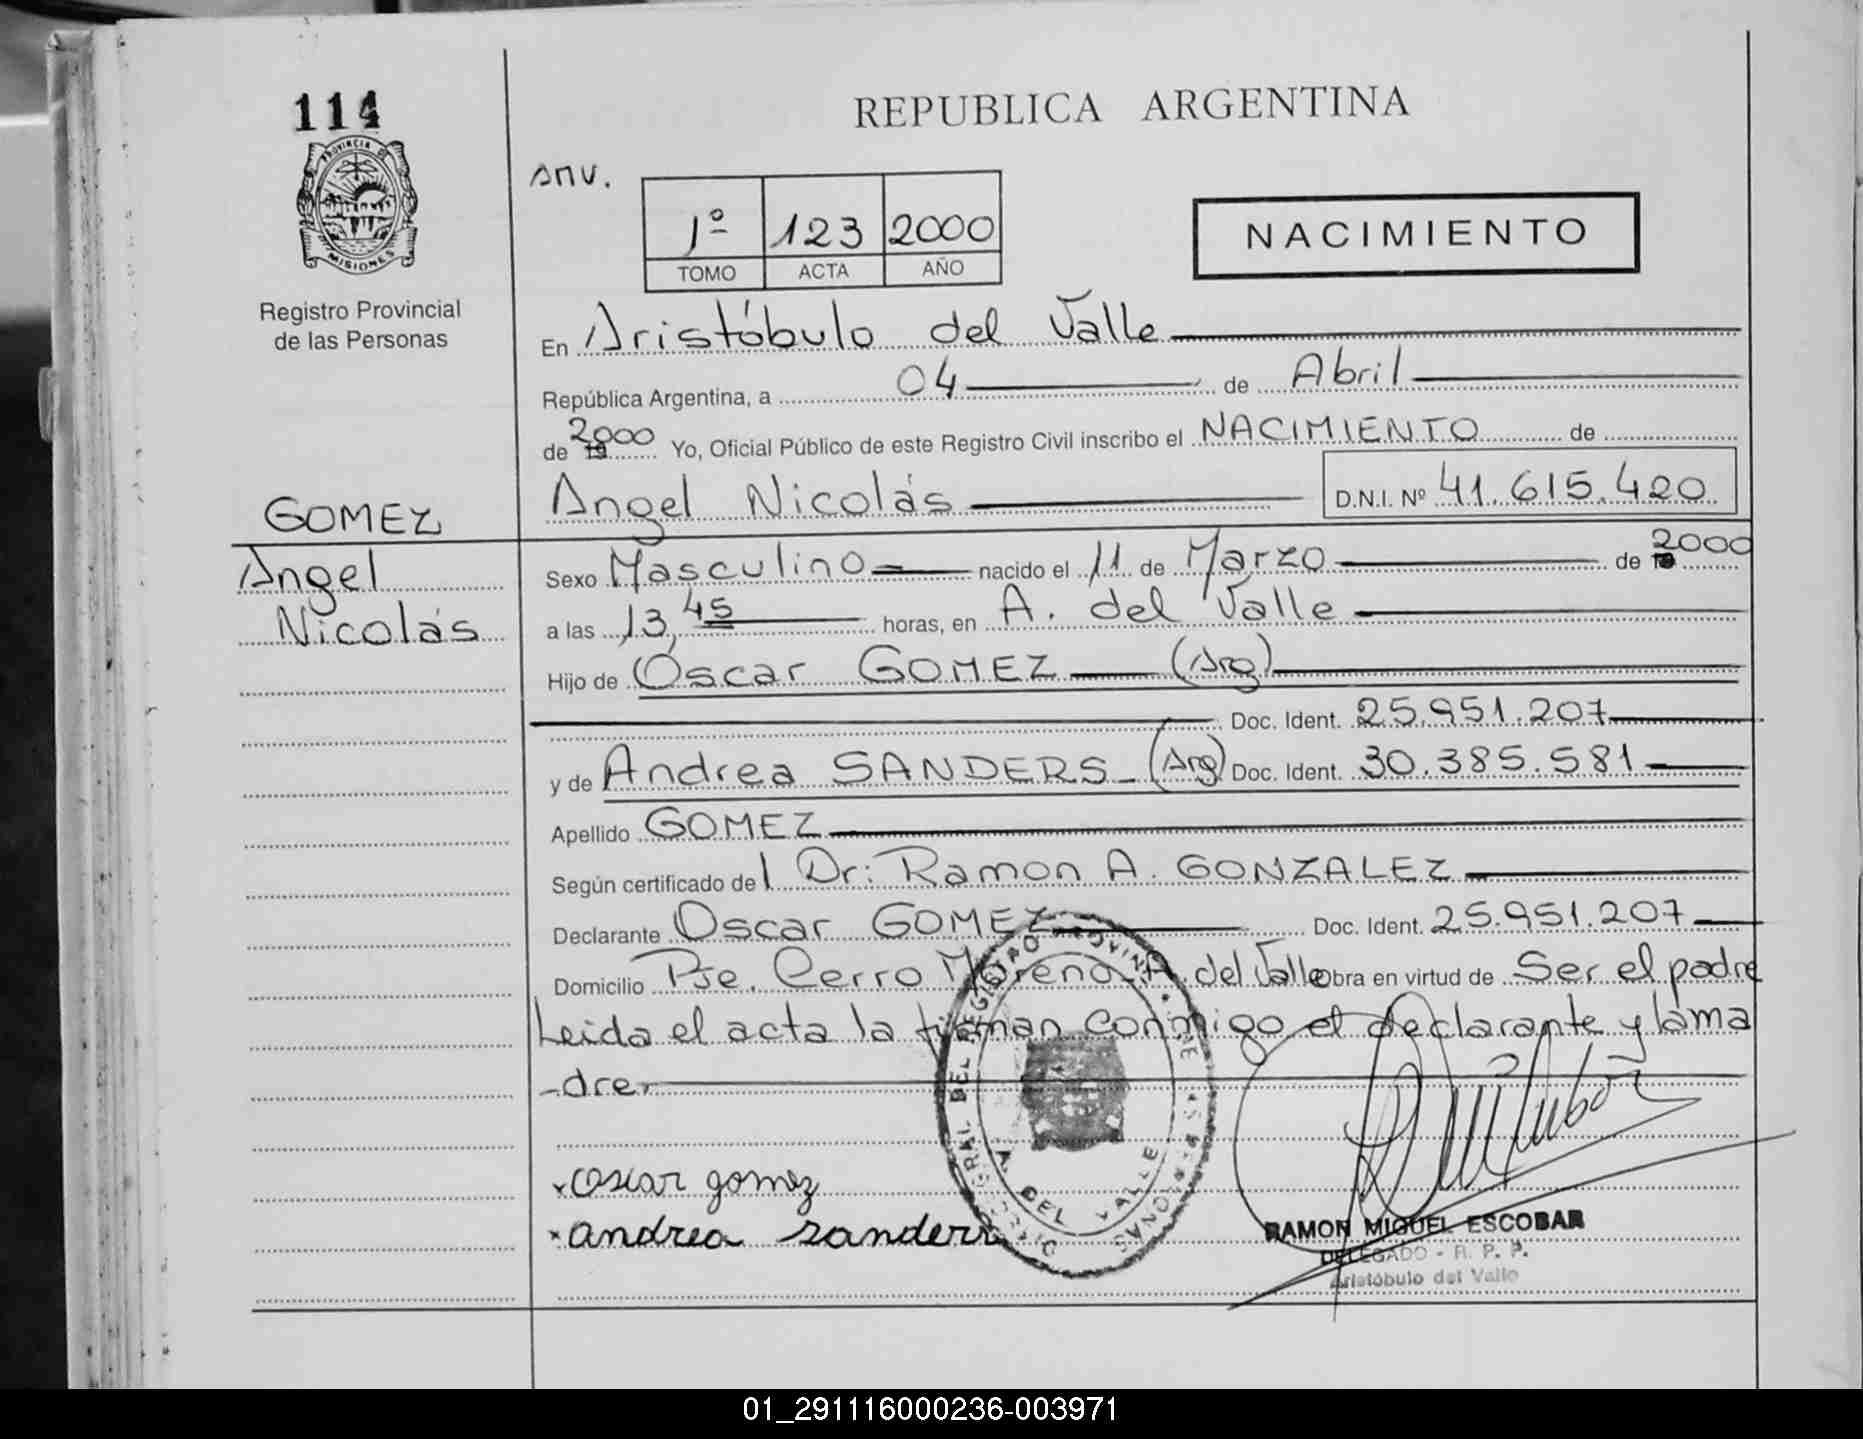 114
REPUBLICA ARGENTINA
PROVINCIA DE
MISIONES
Registro Provincial
de las Personas
1º 123 2000
TOMO ACTA AÑO
NACIMIENTO
En Aristóbulo del Valle
República Argentina, a 04 de Abril
de 19 2000 Yo, Oficial Público de este Registro Civil inscribo el NACIMIENTO de
Angel Nicolás D.N.I. Nº 41.615.420
GOMEZ
Angel
Nicolás
Sexo Masculino nacido el 11 de Marzo de 2000
a las 13,45 horas, en A. del Valle
Hijo de Oscar GOMEZ (Arg)
Doc. Ident. 25.951.207
y de Andrea SANDERS (Arg) Doc. Ident. 30.385.581
Apellido GOMEZ
Según certificado del Dr: Ramon A. GONZALEZ
Declarante Oscar GOMEZ Doc. Ident. 25.951.207
Domicilio Pje. Cerro Moreno-A. del Valle Obra en virtud de Ser el padre
Leida el acta la firman conmigo el declarante y la ma
-dre.
x oscar gomez
x andrea sanders
A. DEL VALLE
RAMON MIGUEL ESCOBAR
DELEGADO - R. P. P.
Aristóbulo del Valle
01_291116000236-003971